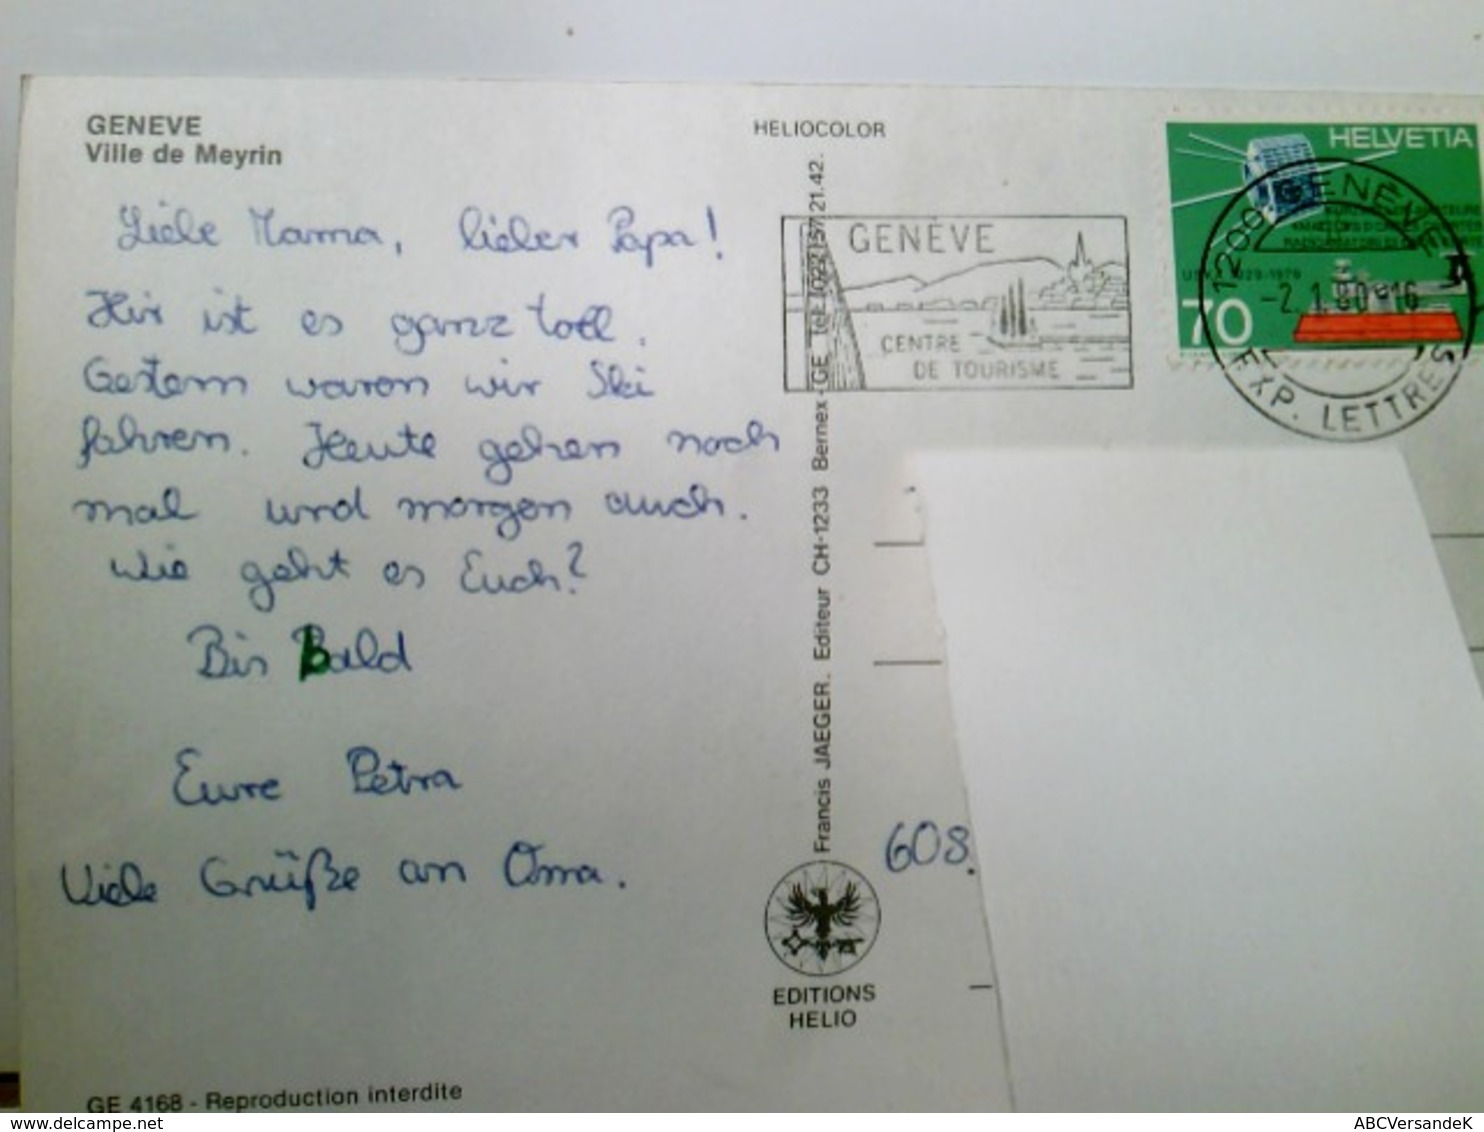 GENEVE
Ville de Meyrin
Liebe Mama, lieber Papa!
Hir ist es ganz toll.
Gestern waren wir Ski
fahren. Heute gehen noch
mal und morgen auch.
Wie geht es Euch?
Bis Bald
Eure Petra
Viele Grüße an Oma.
GE 4168 - Reproduction interdite
HELIOCOLOR
Francis JAEGER. Editeur CH-1233 Bernex - GE Tél. (022) 57.21.42.
EDITIONS
HELIO
GENÈVE
CENTRE
DE TOURISME
HELVETIA
1929-1979
70
1200 GENÈVE
-2.1.80-16
EXP. LETTRES
608.
delcampe.net
ABCVersandeK